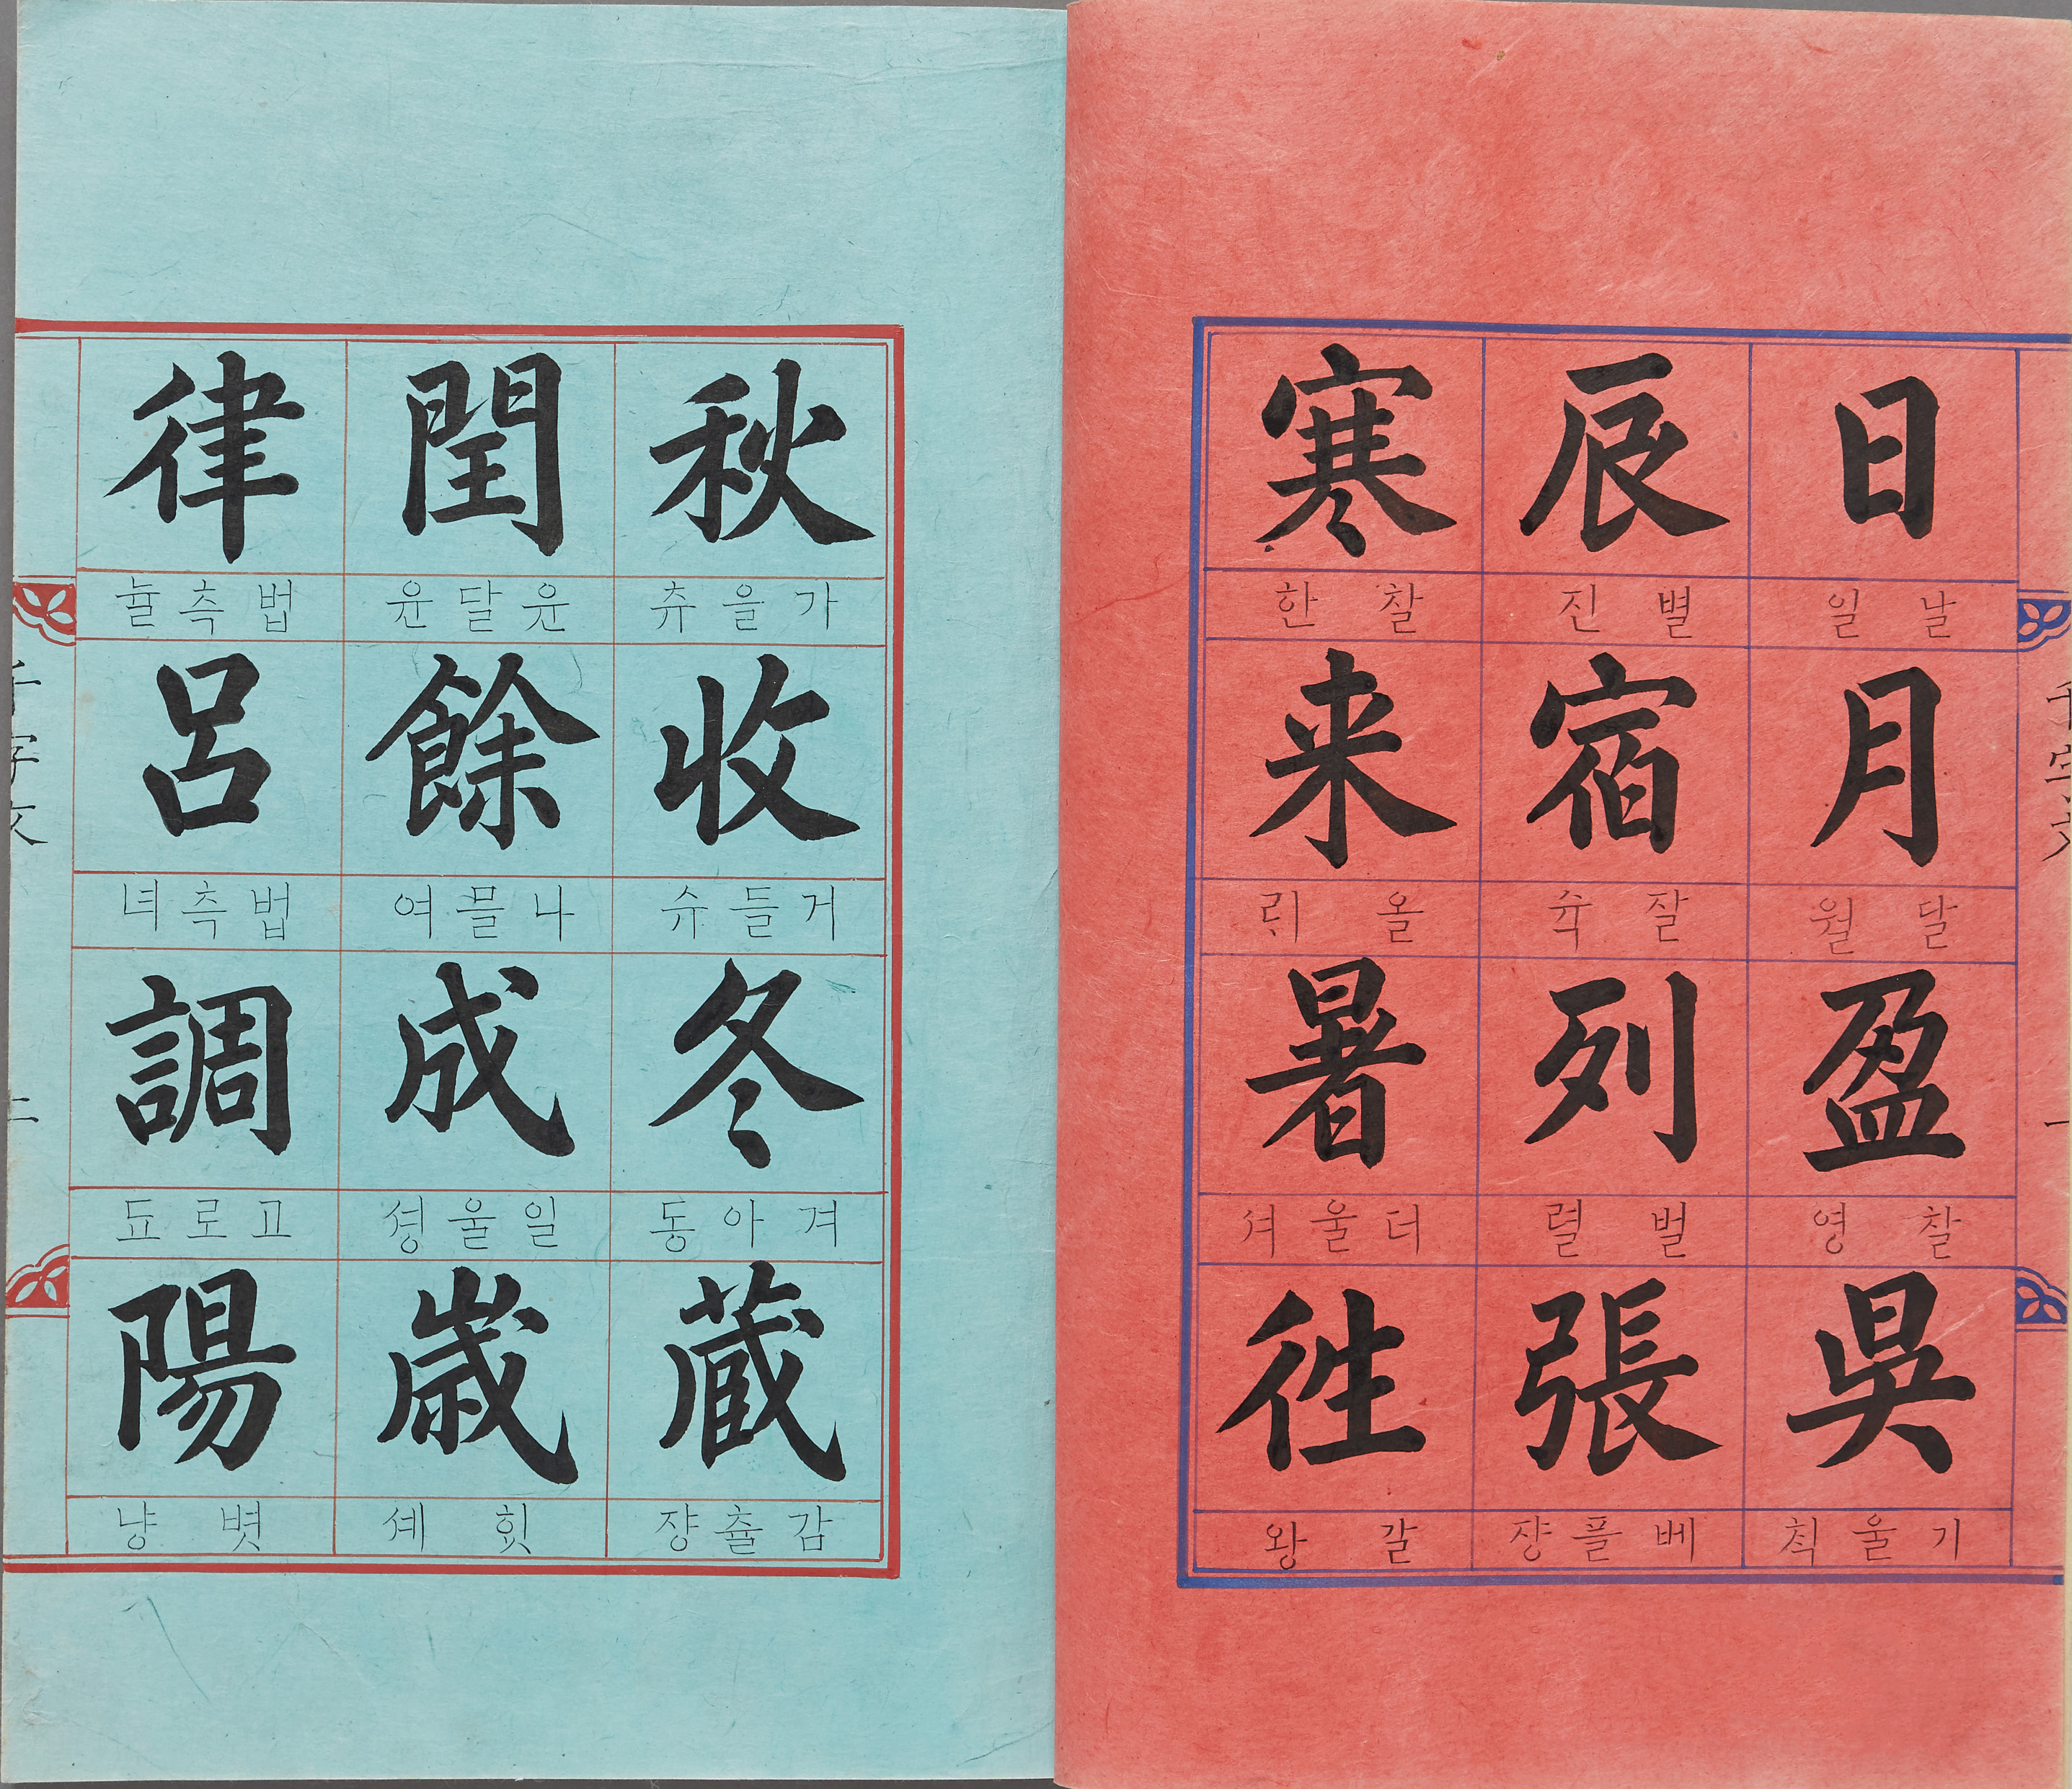 千字文 一
日
날일
月
달월
盈
찰영
吳
기울칙
辰
별진
宿
잘슉
列
벌렬
張
베플쟝
寒
찰한
来
올ᄅᆡ
暑
더울셔
徃
갈왕
秋
가을츄
收
거들슈
冬
겨아동
蔵
감츌쟝
閏
윤달윤
餘
나믈여
成
일울셩
歳
힛셰
律
법측뉼
呂
법측녀
調
고로됴
陽
볏냥
千字文 二